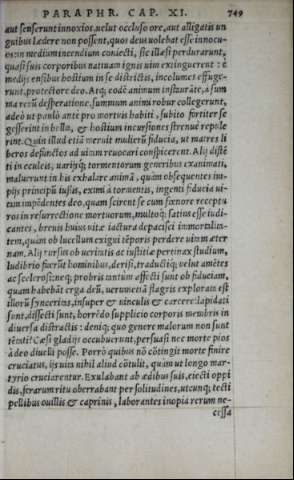 PARAPHR. CAP. XI. 749
aut senserunt innoxios, uelut occluso ore, aut alligatis un
guibus lædere non possent, quos deus uolebat esse innocu-
os: in medium incendium coniecti, sic illæsi perdurarunt,
quasi suis corporibus natiuam ignis uim extinguerent: è
medijs ensibus hostium in se districtis, incolumes effuge-
runt, protectore deo. Atq; eodè animum instaurâte, à sum
ma rerũ desperatione, summum animi robur collegerunt,
adeò ut paulò antè pro mortuis habiti, subito fortiter se
gesserint in bello, & hostium incursiones strenuè repule
rint. Quin illud etiã meruit mulierũ fiducia, ut matres li
beros defunctos ad uitam reuocari conspicerent. Alij disté
ti in eculeis, uarijsq; tormentorum generibus exanimati,
maluerunt in his exhalare animã, quàm obsequentes im-
pijs principũ iussis, eximi à tormentis, ingenti fiducia ui-
tam impẽdentes deo, quam scirent se cum fœnore receptu
ros in resurrectione mortuorum, multoq; satius esse iudi-
cantes, breuis huius uitæ iactura depacisci immortalita-
tem, quàm ob lucellum exigui tẽporis perdere uitam æter
nam. Alij rursus ob ueritatis ac iustitiæ pertinax studium,
ludibrio fuerũt hominibus, derisi, traductiq; uelut amẽtes
ac scelerosi: neq; probris tantùm affecti sunt ob fiduciam,
quam habebãt erga deũ, uerumetiã flagris explorata est
illorũ synceritas, insuper & uinculis & carcere: lapidati
sunt, dissecti sunt, horrẽdo supplicio corporis membris in
diuersa distractis: deniq; quo genere malorum non sunt
tẽtati? Cæsi gladijs occubuerunt, persuasi nec morte pios
à deo diuelli posse. Porrò quibus nõ cõtingit morte finire
cruciatus, ijs uitæ nihil aliud cõtulit, quàm ut longo mar-
tyrio cruciarentur. Exulabant ab ædibus suis, eiecti oppi
dis, ferarum ritu oberrabant per solitudines, utcunq; tecti
pellibus ouillis & caprinis, laborantes inopia rerum ne-
cessa